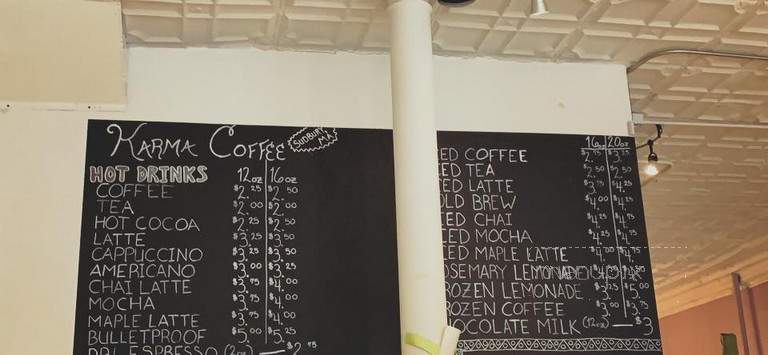 KARMA COFFEE SUDBURY MA
HOT DRINKS 12oz 16oz
COFFEE $2.25 $2.50
TEA $2.00 $2.00
HOT COCOA $2.25 $2.50
LATTE $3.25 $3.50
CAPPUCCINO $3.25 $3.50
AMERICANO $3.00 $3.25
CHAI LATTE $3.75 $4.00
MOCHA $3.75 $4.00
MAPLE LATTE $3.75 $4.00
BULLETPROOF $5.00 $5.25
DBL ESPRESSO (2oz) — $2.75
16oz 20oz
ED COFFEE $2.75 $3.25
ED TEA $2.50 $2.50
ED LATTE $3.75 $4.25
OLD BREW $4.00 $4.25
ED CHAI $4.25 $4.75
ED MOCHA $4.25 $4.75
ED MAPLE LATTE
OSEMARY LEMONADE
ROZEN LEMONADE $3.25 $5.00
ROZEN COFFEE $3.00 $3.75
HOCOLATE MILK (12oz) — $3